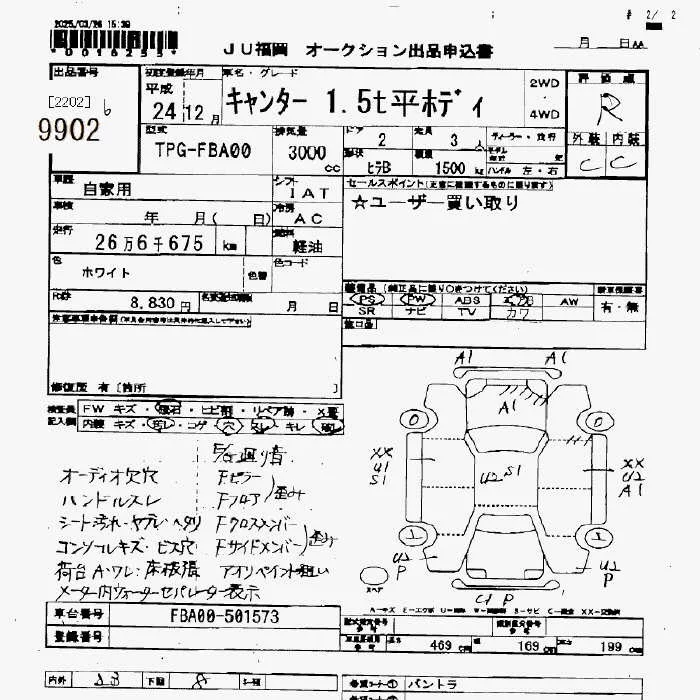 2025/03/26 15:39
# 2/ 2
*0016255*
JU福岡 オークション出品申込書
月 日AA
出品番号
[2202] 6
9902
初度登録年月
平成
24 12 月
車名・グレード
キャンター 1.5t平ボディ
2WD
4WD
評価点
R
外装 内装
C C
型式
TPG-FBA00
排気量
3000 cc
ドア
2
定員
3 人
形状
ヒラB
積載
1500 kg
ディーラー・並行
モデル
年
ハンドル 左・右
車歴
自家用
シフト
IAT
セールスポイント
☆ユーザー買い取り
車検
年 月( 日)
冷房
AC
走行
26万6千675 km
燃料
軽油
色
ホワイト
色替
色コード
R券
8,830円
月 日
装備品(純正品に限り○をつけてください)
PS PW ABS エアB AW
SR ナビ TV カワ
有・無
修復歴 有 [箇所 ]
検査員
記入欄
FW キズ・飛石・ヒビ割・リペア跡・X要
内装 キズ・汚レ・コゲ・穴・スレ・キレ・破レ
オーディオ欠穴
ハンドルスレ
シート汚れ・ヤブレ・ヘタリ
コンソールキズ・ビス穴
荷台A・ワレ・床板損
メーター内ウォーターセパレーター表示
E/G廻り音
Fピラー
Fフロア
歪み
Fクロスメンバー
Fサイドメンバー
歪み
アオリペイント粗い
A1 A1
A1
XX
U1
S1
U2 S1
XX
U2
A1
U2
P
U2
P
U1 P
スペア
車台番号
FBA00-501573
登録番号
型式指定番号
類別区分番号
長さ 469 cm 幅 169 cm 高さ 199 cm
内外
下廻 8
希望コーナー① パントラ
希望コーナー②